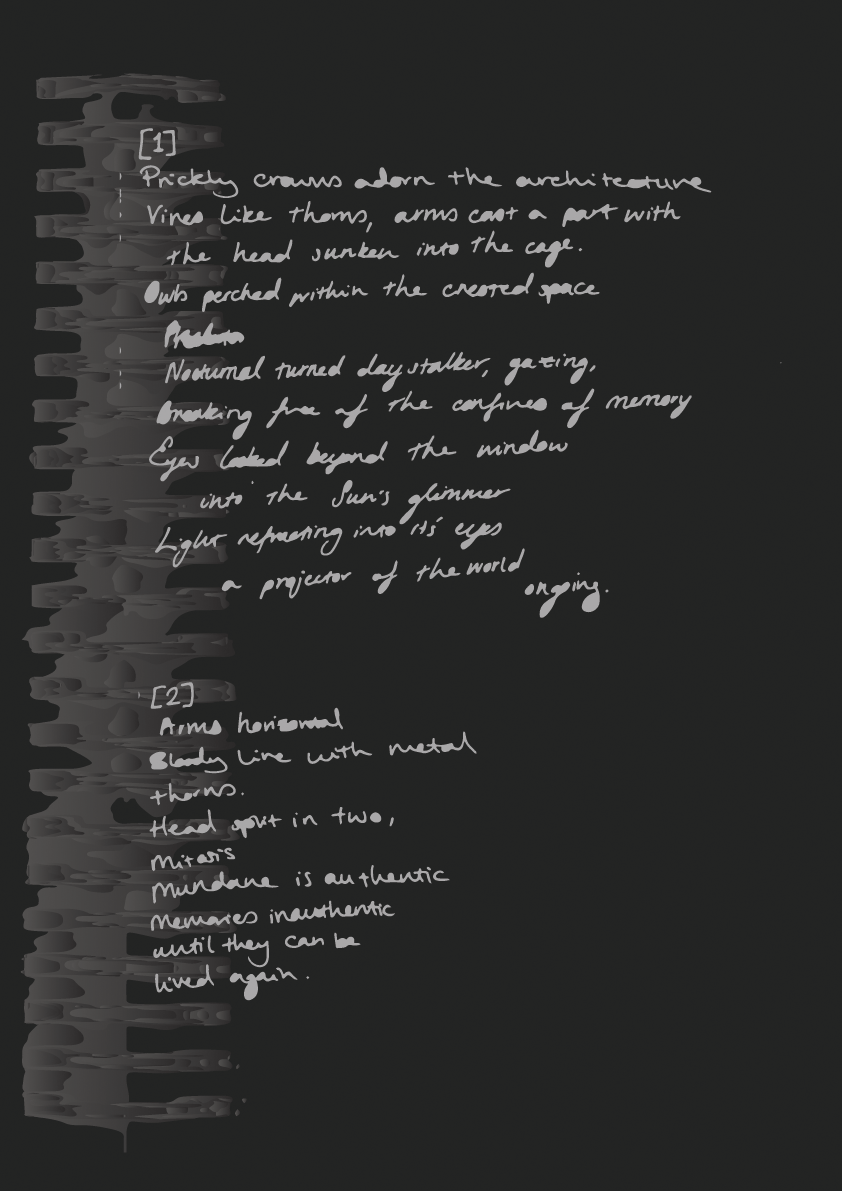 [1]
Prickly crowns adorn the architecture
Vines like thorns, arms cast a part with
the head sunken into the cage.
Owls perched within the created space
Nocturnal turned day stalker, gazing,
Breaking free of the confines of memory
Eyes looked beyond the window
into the Sun's glimmer
Light refracting into its' eyes
a projector of the world
ongoing.
[2]
Arms horizontal
line with metal
thorns.
Head split in two,
Mitosis
Mundane is authentic
Memories inauthentic
until they can be
lived again.